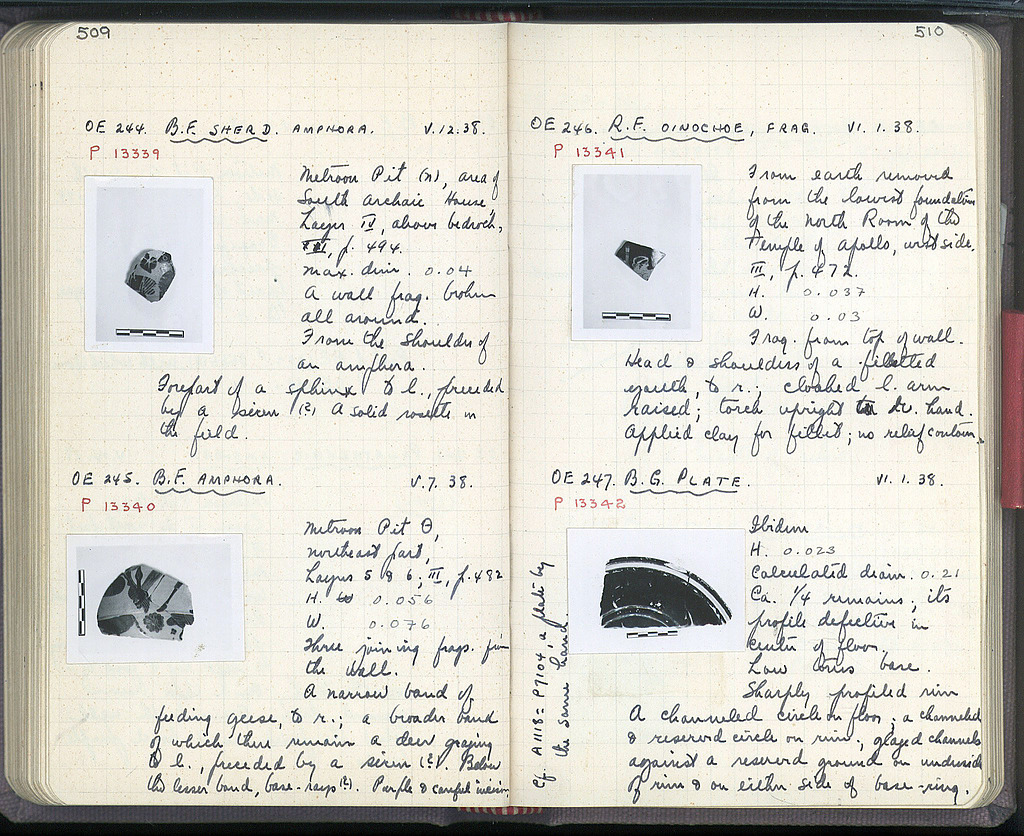 509
OE 244. B.F. SHERD. AMPHORA. V.12.38.
P 13339
Metroon Pit (n), area of
South Archaic House
Layer IV, above bedrock,
III, p. 494.
Max. dim. 0.04
A wall frag. broken
all around.
From the shoulder of
an amphora.
Forepart of a sphinx to l., preceded
by a siren (?) A solid rosette in
the field.
OE 245. B.F. AMPHORA. V.7.38.
P 13340
Metroon Pit Θ,
northeast part,
Layers 5 & 6. III, p. 482
H. 0.056
W. 0.076
Three joining frags. from
the wall.
A narrow band of
feeding geese, to r.; a broader band
of which there remain a deer grazing
to l., preceded by a siren (?). Below
the lesser band, base-rays (?). Purple & careful incision
510
OE 246. R.F. OINOCHOE, FRAG. VI.1.38.
P 13341
From earth removed
from the lowest foundation
of the North Room of the
Temple of Apollo, west side.
III, p. 472.
H. 0.037
W. 0.03
Frag. from top of wall.
Head & shoulders of a filletted
youth, to r.; cloaked l. arm
raised; torch upright in r. hand.
Applied clay for fillet; no relief contour.
OE 247. B.G. PLATE. VI.1.38.
P 13342
Ibidem
H. 0.023
Calculated diam. 0.21
Ca. 1/4 remains; its
profile defective in
center of floor.
Low torus base.
Sharply profiled rim
A channeled circle on floor; a channeled
& reserved circle on rim; glazed channels
against a reserved ground on underside
of rim & on either side of base-ring.
Cf. A1118 = P7104, a plate by
the same hand.